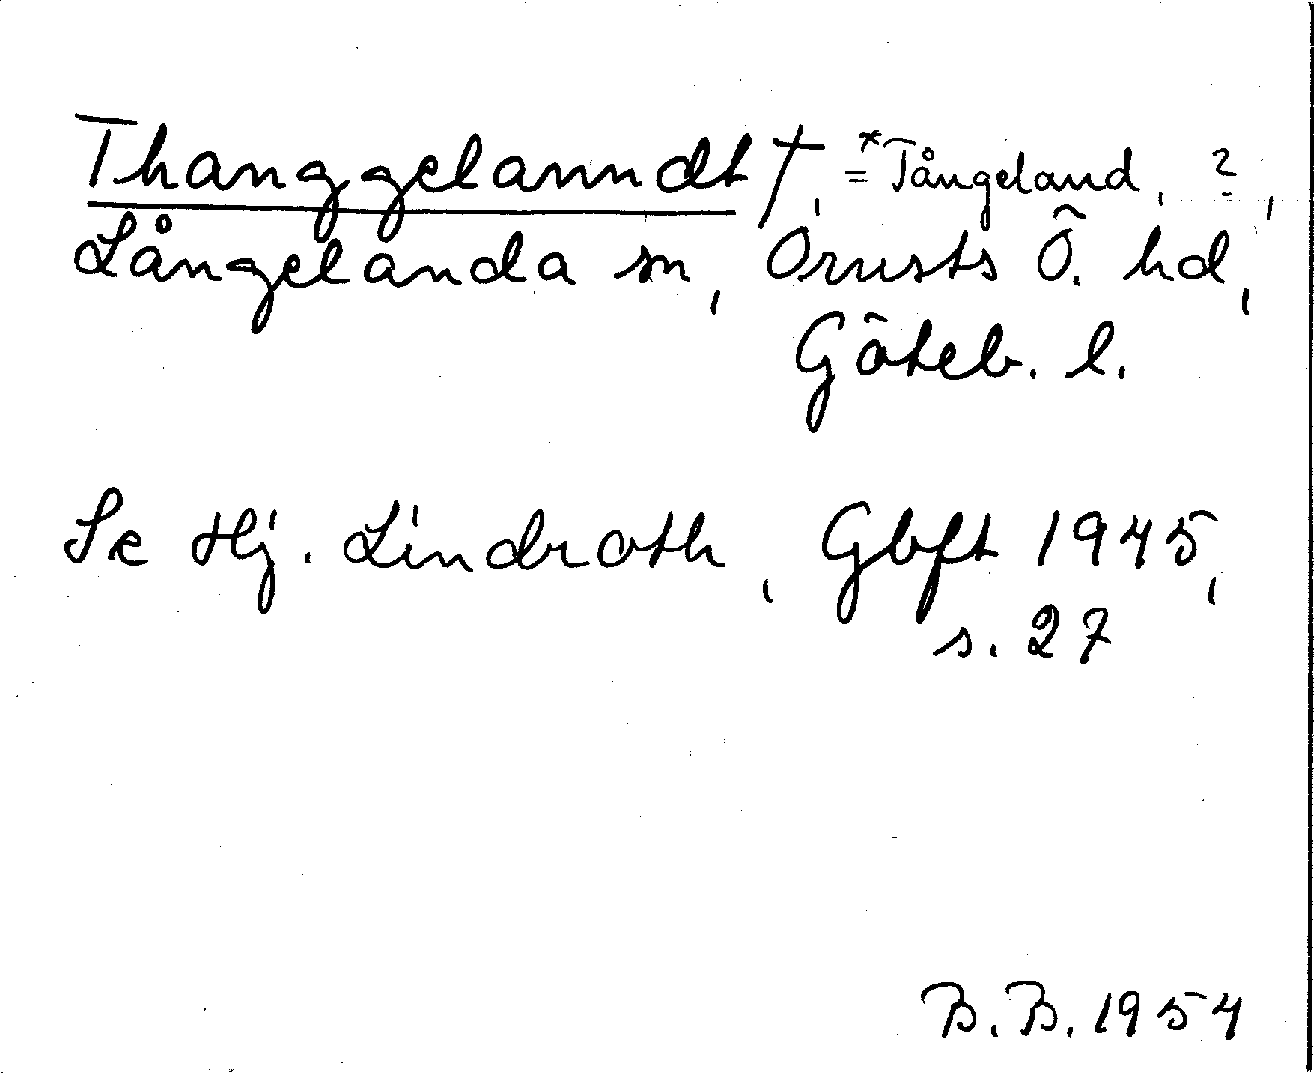 Thanggelanndt †, = *Tångeland, ?,
Långelanda sn, Orusts Ö. hd,
Göteb. l.
Se Hj. Lindroth, Gbft 1945,
s. 27
B. B. 1954